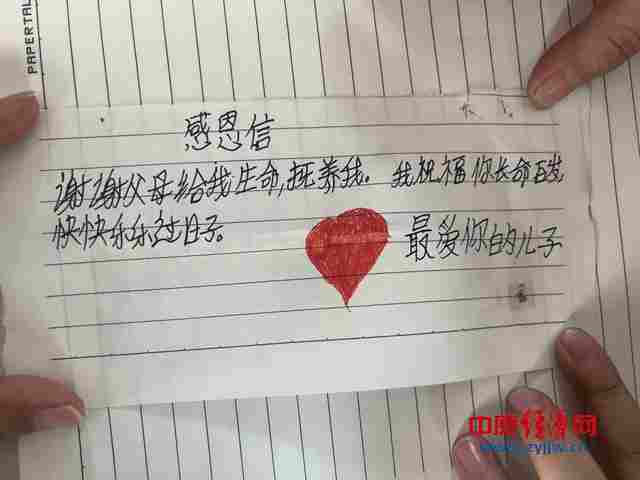 PAPERTAL
感恩信
谢谢父母给我生命,抚养我。我祝福你长命百岁
快快乐乐过日子。
最爱你的儿子
中原经济网
zyjjw.cn